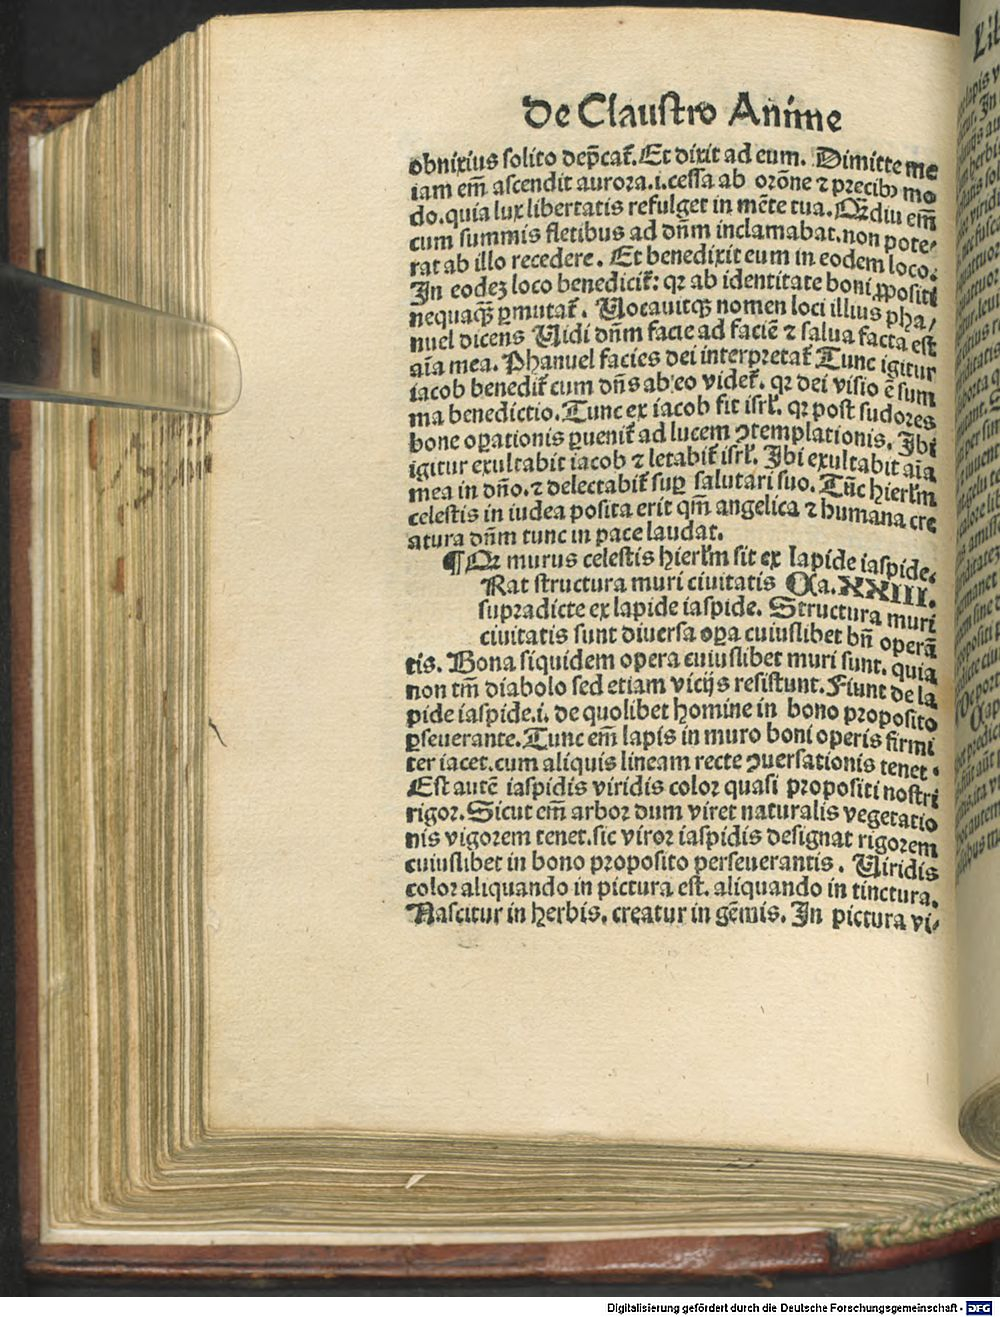 De Claustro Anime
obnixius solito dep̄cat᷑. Et dixit ad eum. Dimitte me
iam em̄ ascendit aurora. i. cessa ab orōne ⁊ precibꝰ mo
do. quia lux libertatis refulget in mēte tua. Qꝫdiu em̄
cum summis fletibus ad dn̄m inclamabat. non pote⸗
rat ab illo recedere. Et benedixit eum in eodem loco.
In eodeꝫ loco benedicit᷑: qꝛ ab identitate boni ꝓpositi
nequaqꝫ ꝑmutat᷑. Uocauitqꝫ nomen loci illius pha/
nuel dicens Uidi dn̄m facie ad faciē ⁊ salua facta est
aīa mea. Phanuel facies dei interpretat᷑ Tunc igitur
iacob benedit᷑ cum dn̄s ab eo videt᷑. qꝛ dei visio ē sum
ma benedictio. Tunc ex iacob fit isrl᷑. qꝛ post sudores
bone oꝑationis ꝑuenit᷑ ad lucem ꝯtemplationis. Ibi
igitur exultabit iacob ⁊ letabit᷑ isrl᷑. Ibi exultabit aīa
mea in dn̄o. ⁊ delectabit᷑ suꝑ salutari suo. Tūc hierlm̄
celestis in iudea posita erit qm̄ angelica ⁊ humana cre
atura dn̄m tunc in pace laudat.
¶ Qꝛ murus celestis hierlm̄ sit ex lapide iaspide.
Rat structura muri ciuitatis Ca. XXIII.
supradicte ex lapide iaspide. Structura muri
ciuitatis sunt diuersa oꝑa cuiuslibet bn̄ operā
tis. Bona siquidem opera cuiuslibet muri sunt. quia
non tm̄ diabolo sed etiam vicijs resistunt. Fiunt de la
pide iaspide. i. de quolibet homine in bono proposito
ꝑseuerante. Tunc em̄ lapis in muro boni operis firmi
ter iacet. cum aliquis lineam recte ꝯuersationis tenet.
Est autē iaspidis viridis color quasi propositi nostri
rigor. Sicut em̄ arbor dum viret naturalis vegetatio
nis vigorem tenet. sic viror iaspidis designat rigorem
cuiuslibet in bono proposito perseuerantis. Uiridis
color aliquando in pictura est. aliquando in tinctura.
Nascitur in herbis. creatur in gēmis. In pictura vi⸗
Digitalisierung gefördert durch die Deutsche Forschungsgemeinschaft - DFG